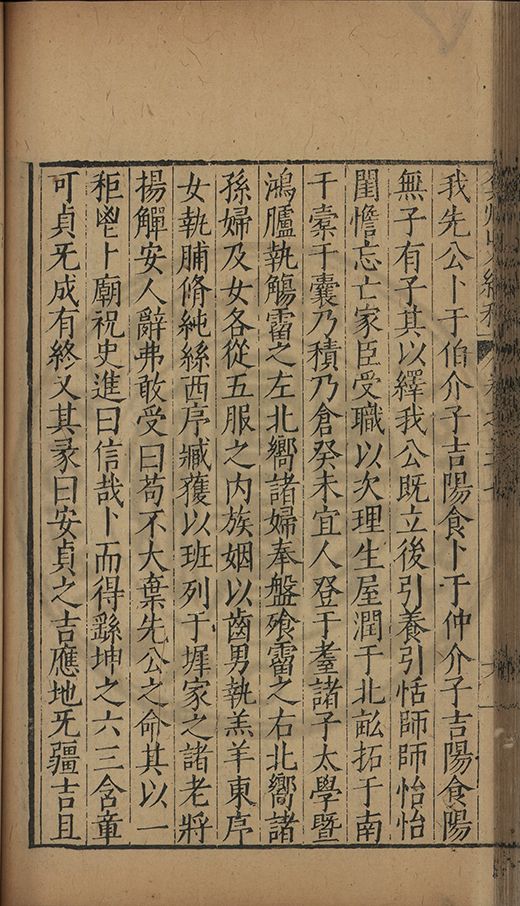 我先公卜于伯介子吉陽食卜于仲介子吉陽食陽
無子有子其以繹我公既立後引養引恬師師怡怡
閨憺忘亡家臣受職以次理生屋潤于北畝拓于南
于橐于囊乃積乃倉癸未宜人登于耋諸子太學暨
鴻臚執觴霤之左北嚮諸婦奉盤飱霤之右北嚮諸
孫婦及女各從五服之內族姻以齒男執羔羊東序
女執脯脩純絲西序臧獲以班列于墀家之諸老將
揚觶安人辭弗敢受曰苟不大棄先公之命其以一
秬鬯卜廟祝史進曰信哉卜而得繇坤之六三含章
可貞旡成有終又其彖曰安貞之吉應地旡疆吉且